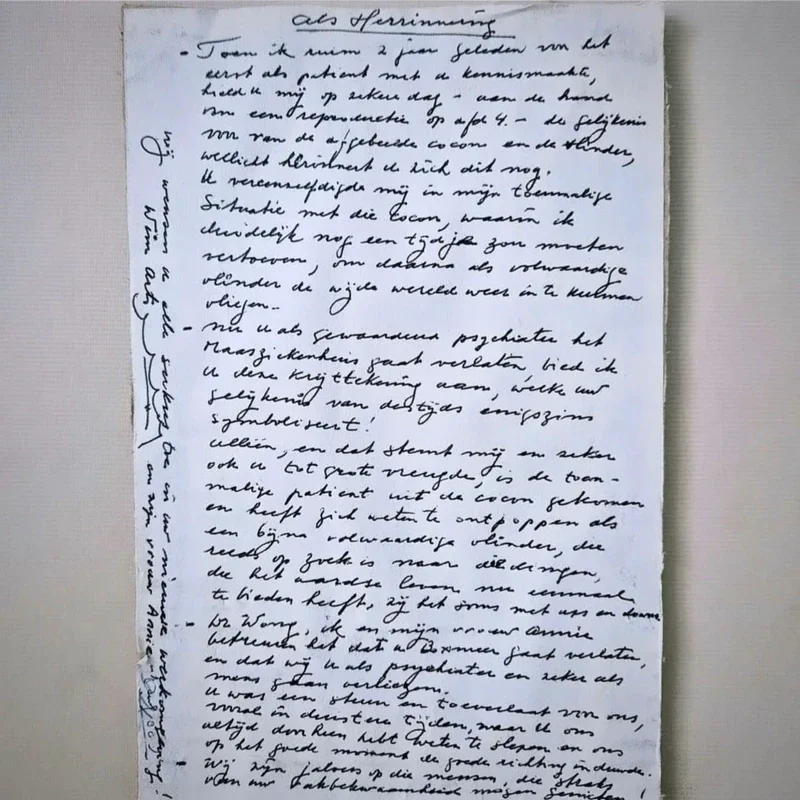 als Herrinnering
- Toen ik ruim 2 jaar geleden voor het
eerst als patient met u kennismaakte,
hield u mij op zekere dag - aan de hand
van een reproductie op afd 4. - de gelijkenis
voor van de afgebeelde cocon en de vlinder,
wellicht herinnert u zich dit nog.
U vereenzelfdigde mij in mijn toenmalige
situatie met die cocon, waarin ik
duidelijk nog een tijdje zou moeten
vertoeven, om daarna als volwaardige
vlinder de wijde wereld weer in te kunnen
vliegen.-
- Nu u als gewaardeerd psychiater het
Maasziekenhuis gaat verlaten, bied ik
u deze krijttekening aan, welke uw
gelijkenis van destijds enigszins
symboliseert!
alleen, en dat stemt mij en zeker
ook u tot grote vreugde, is de toen-
malige patient uit de cocon gekomen
en heeft zich weten te ontpoppen als
een bijna volwaardige vlinder, die
reeds op zoek is naar de dingen,
die het aardse leven nu eenmaal
te bieden heeft, zij het soms met ups en downs
- Dr Wong, ik en mijn vrouw Annie
betreuren het dat u Boxmeer gaat verlaten,
en dat wij u als psychiater en zeker als
mens gaan verliezen.
U was een steun en toeverlaat voor ons,
vooral in duistere tijden, waar u ons
altijd doorheen hebt weten te slepen en ons
op het goede moment de goede richting in duwde.
- Wij zijn jaloers op die mensen, die straks
van uw vakbekwaamheid mogen genieten!
Wij wensen u alle succes toe in uw nieuwe werkomgeving!
Wim Arts en mijn vrouw Annie